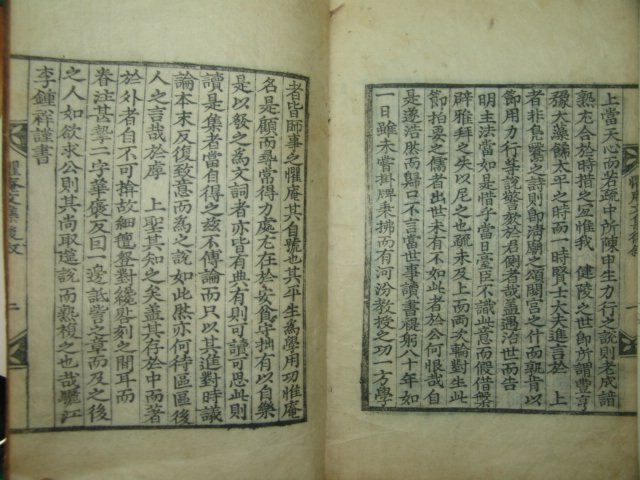 上當天心而若疏中所陳申生力行之說則老成諳
熟允合於時措之宜惟我 健陵之世卽所謂曹亨
彛大藻餙太平之時而一時賢士大夫進言於 上
者非鳧鷖之詩則卽淸廟之頌閟宮之什而孰肯以
節用力行等說警欬於君側者哉盖遇治世而告
明主法當如是惜乎當日臺臣不識此意而假借槃
辟雅拜之失以尼之也疏未及上而兩次輪對生此
節拍要之儒者出世未有不如此者於公何恨哉自
是遂浩然而歸口不言當世事讀書禔躬八十年如
一日雖未嘗掛牌秉拂而有河汾敎授之功一方學
者皆師事之懼庵其自號也其平生爲學用功惟庵
名是顧而尋常得力處尤在於安貧守拙有以自樂
是以發之爲文詞者亦皆有典有則可讀可思此則
讀是集者當自得之玆不傳論而只以其進對時議
論本末反復致意而爲之說如此然亦何待區區後
人之言哉於序 上聖其知之矣盖其存於中而著
於外者自不可揜故細氊登對纔晷刻之間耳而
眷注甚摯二字華褒反回一邊詆訾之章而及之後
之人如欲求公則其尙取遺說而熟複之也哉驪江
李鍾祥謹書
懼庵文集後叙 二